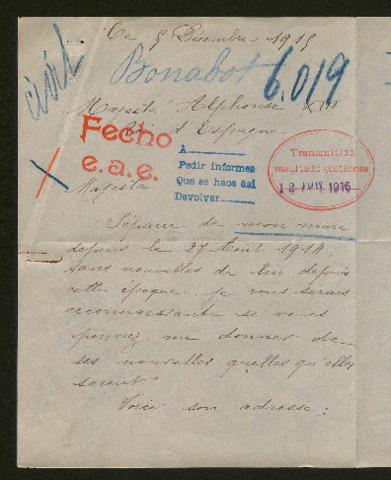 Ce 5 Décembre 1915
civil
Bonabot
6.019
Majesté Alphonse XIII
d'Espagne
Fecho
e.a.e.
A
Pedir informes
Que se hace así
Devolver
Transmitido
resultado gestiones
12 JUN 1916
Majesté
Séparée de mon mari
depuis le 27 Août 1914.
Sans nouvelles de lui depuis
cette époque. je vous serais
reconnaissante si vous
pouviez me donner de
ses nouvelles quelles qu'elles
soient
Voici son adresse :